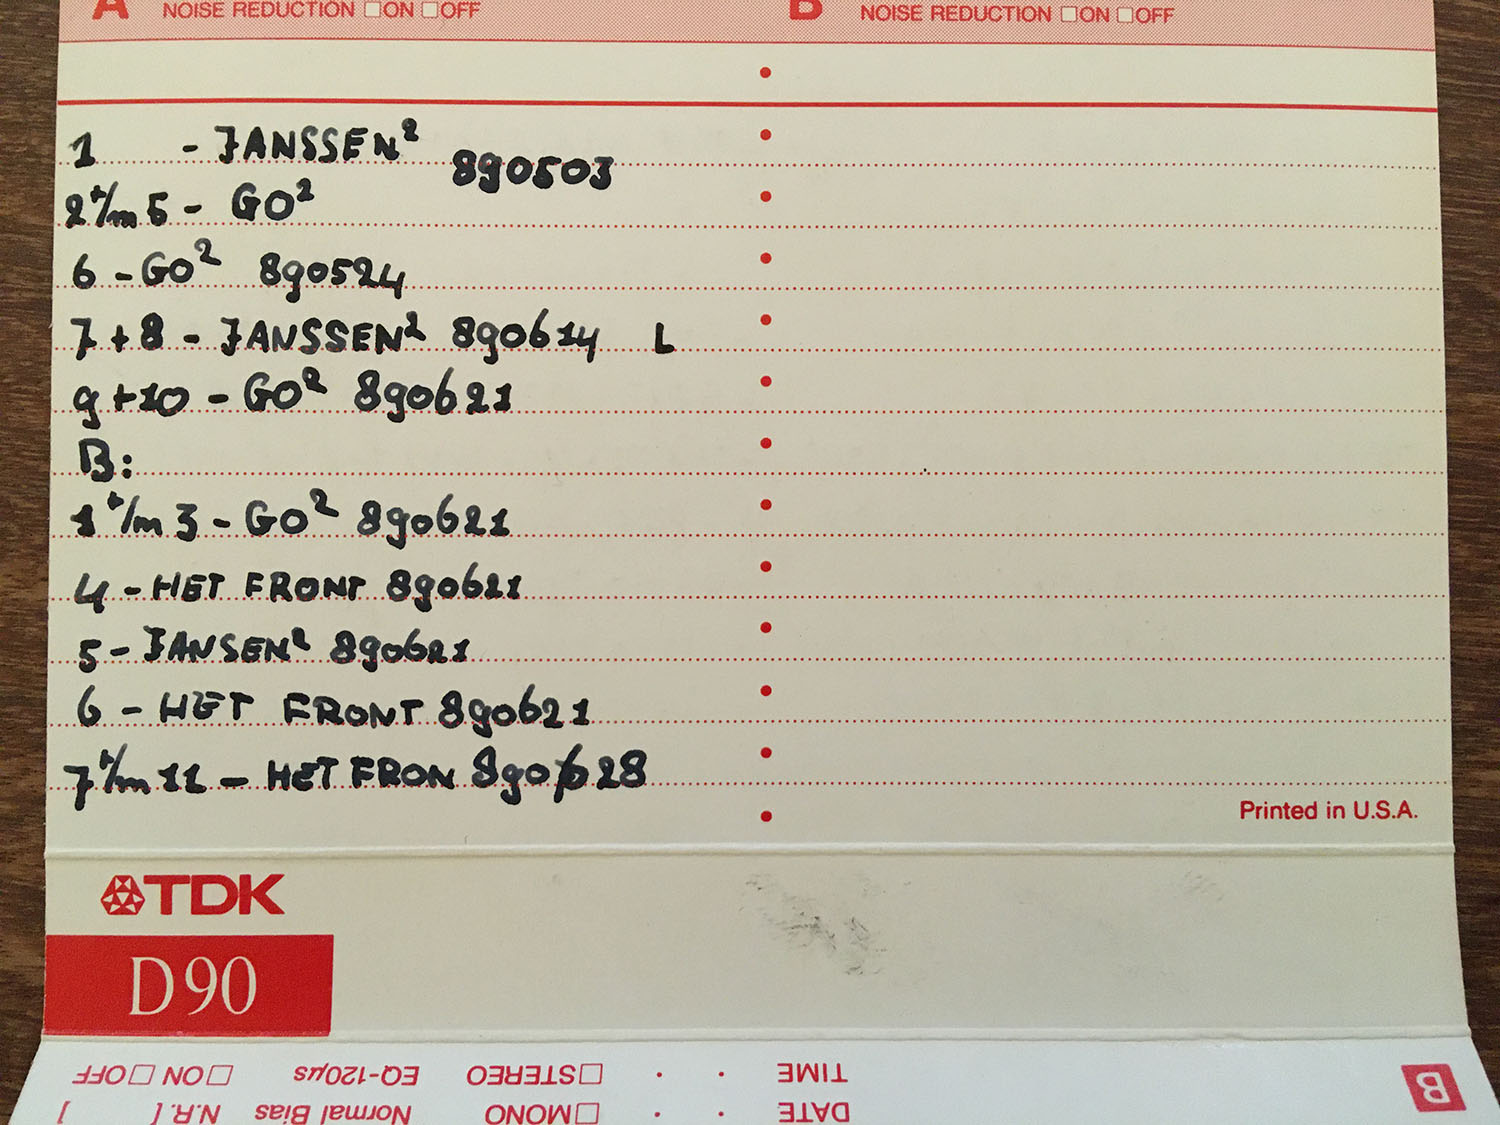 A NOISE REDUCTION □ON □OFF B NOISE REDUCTION □ON □OFF
1 - JANSSEN² 890503
2 t/m 5 - GO²
6 - GO² 890524
7 + 8 - JANSSEN² 890614 L
9 + 10 - GO² 890621
B:
1 t/m 3 - GO² 890621
4 - HET FRONT 890621
5 - JANSEN² 890621
6 - HET FRONT 890621
7 t/m 11 - HET FRON 890628
Printed in U.S.A.
TDK
D90
B
DATE □MONO Normal Bias N.R. [ ]
TIME □STEREO EQ-120µs □ON □OFF